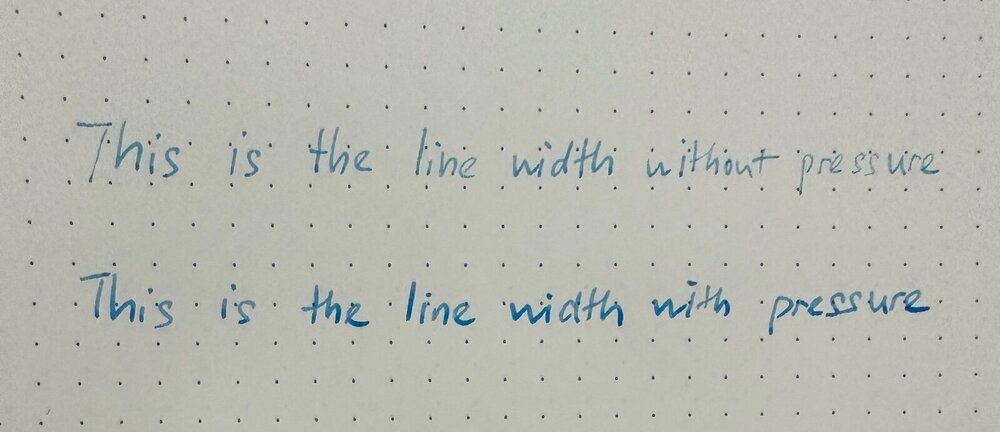 This is the line width without pressure
This is the line width with pressure